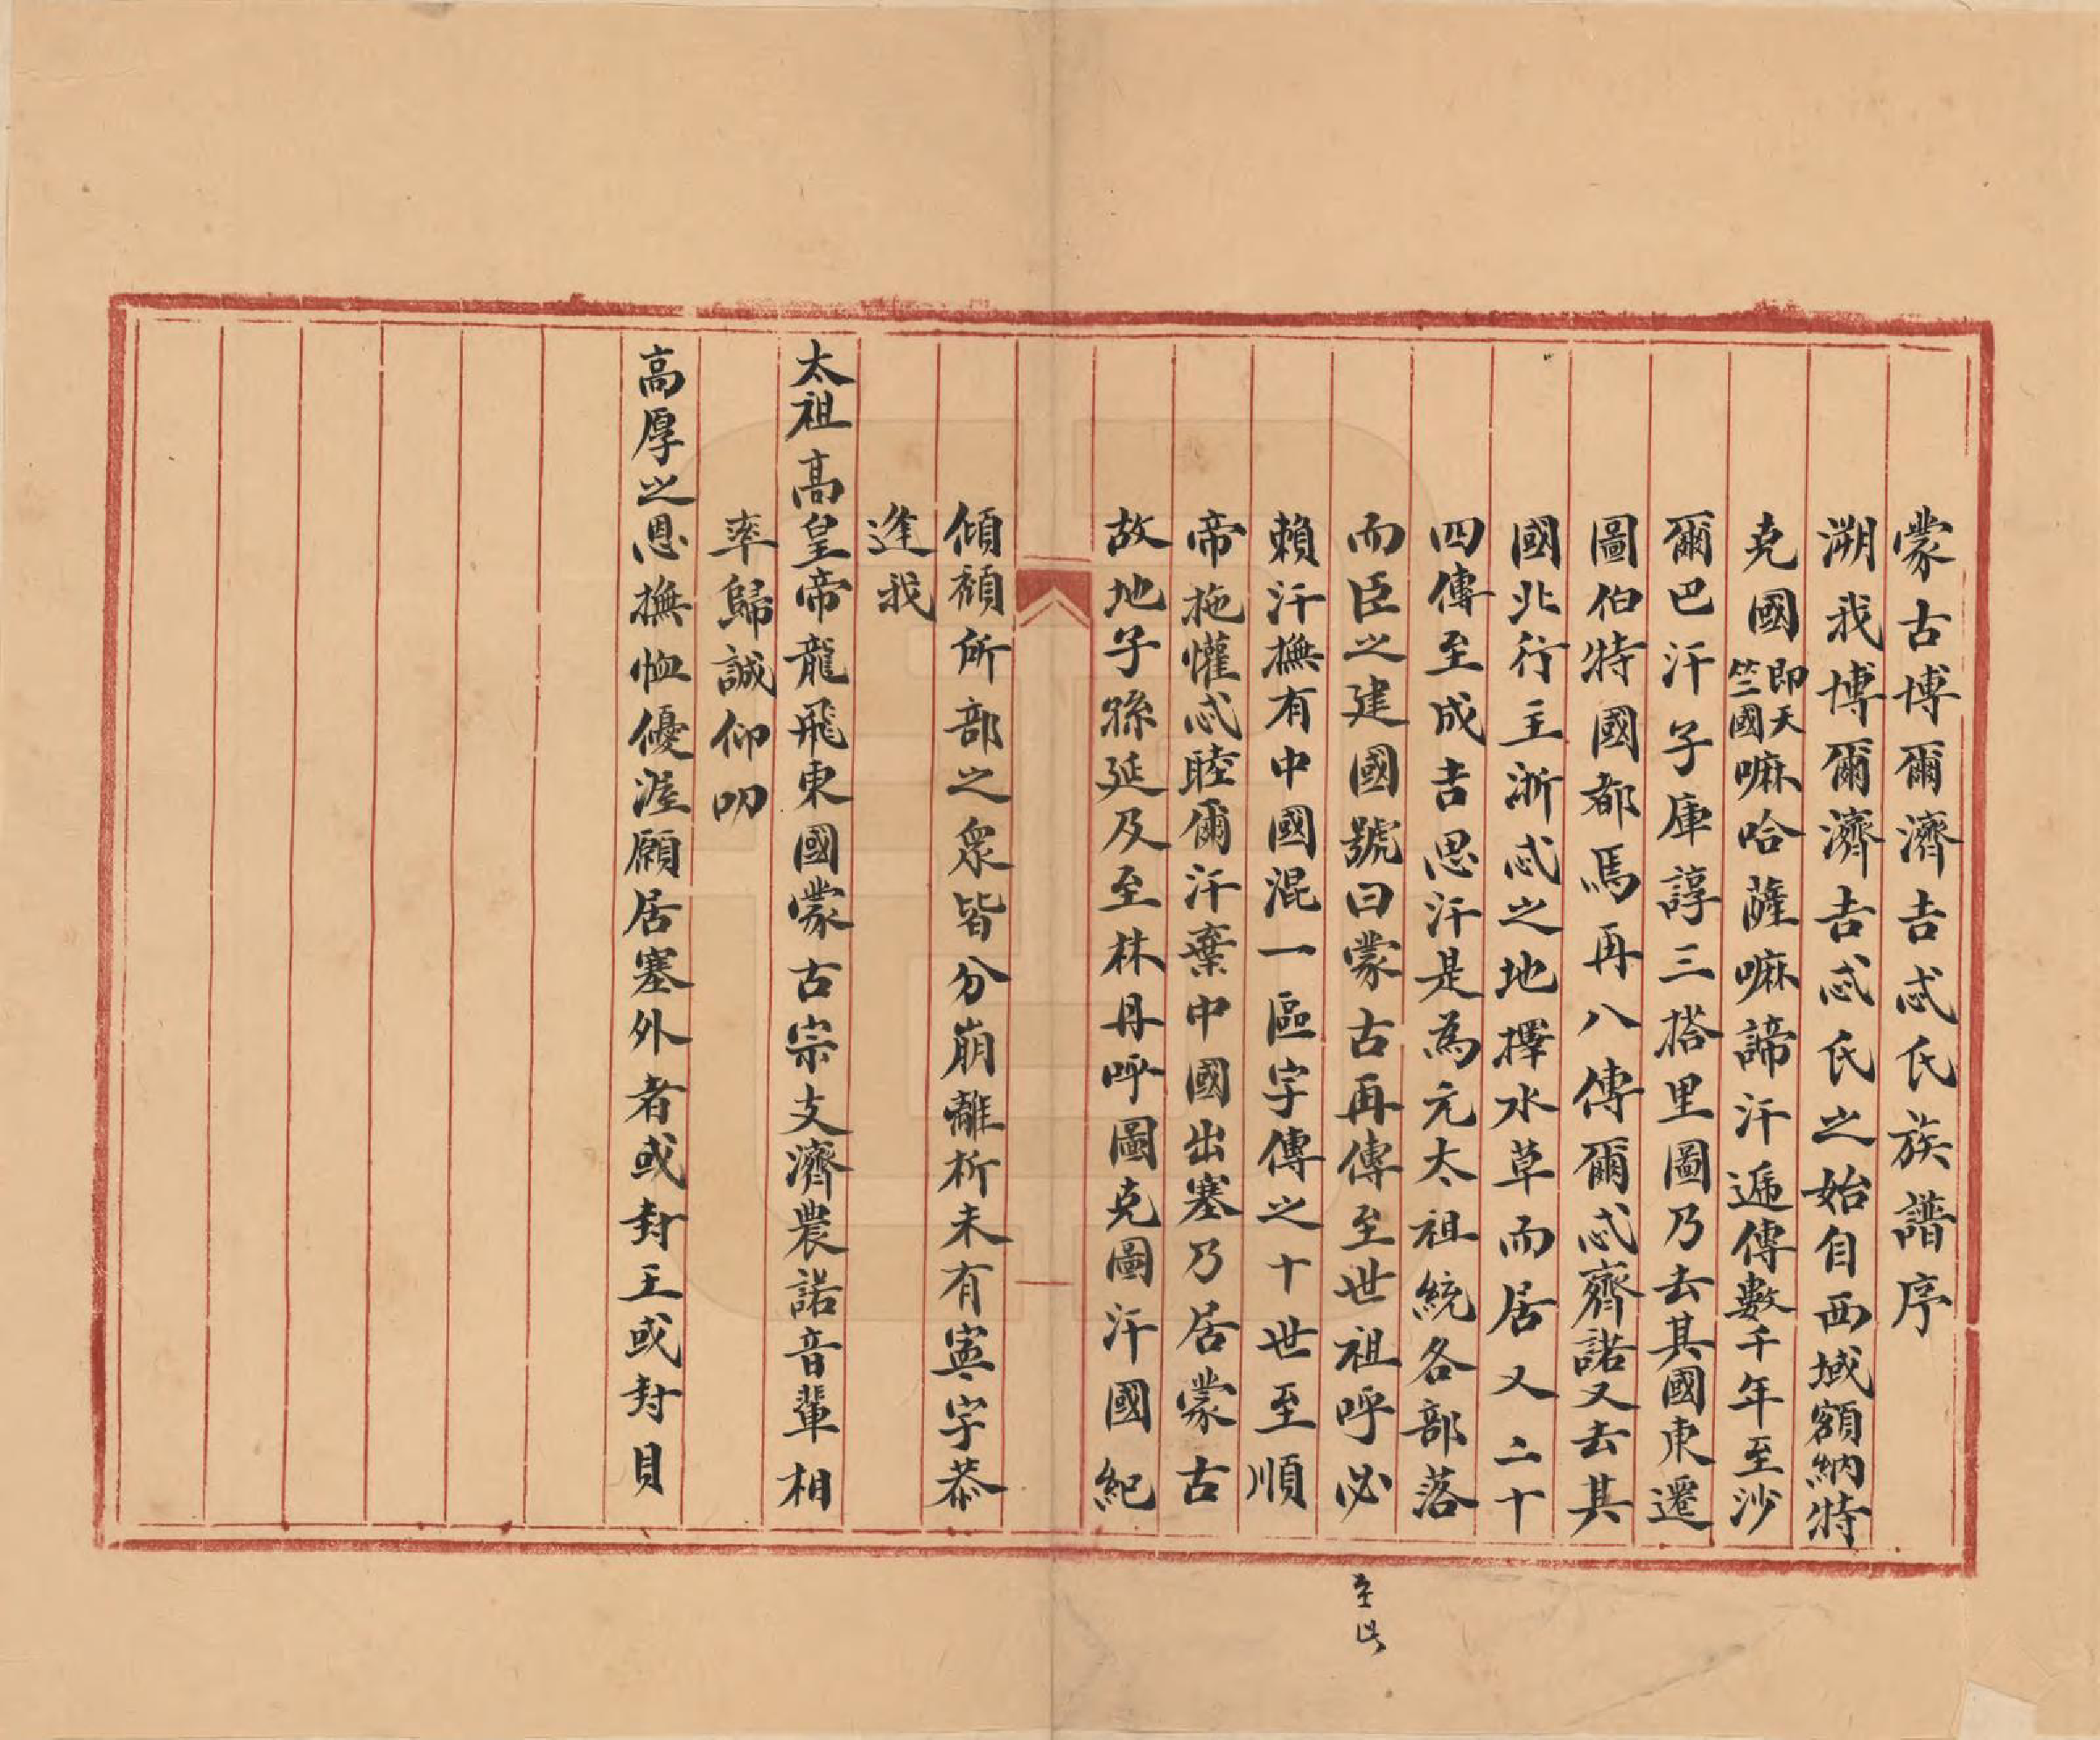 蒙古博爾濟吉忒氏族譜序
溯我博爾濟吉忒氏之始自西域額納特
克國即天竺國嘛哈薩嘛諦汗遞傳數千年至沙
爾巴汗子庫諄三搭里圖乃去其國東遷
圖伯特國都馬再八傳爾忒齊諾又去其
國北行主浙忒之地擇水草而居又二十
四傳至成吉思汗是為元太祖統各部落
而臣之建國號曰蒙古再傳至世祖呼必
賴汗撫有中國混一區宇傳之十世至順
帝拖懽忒睦爾汗棄中國出塞乃居蒙古
故地子孫延及至林丹呼圖克圖汗國紀
傾頹所部之衆皆分崩離析未有寍宇恭
逢我
太祖高皇帝龍飛東國蒙古宗支濟農諾音輩相
率歸誠仰叨
高厚之恩撫恤優渥願居塞外者或封王或封貝
至此